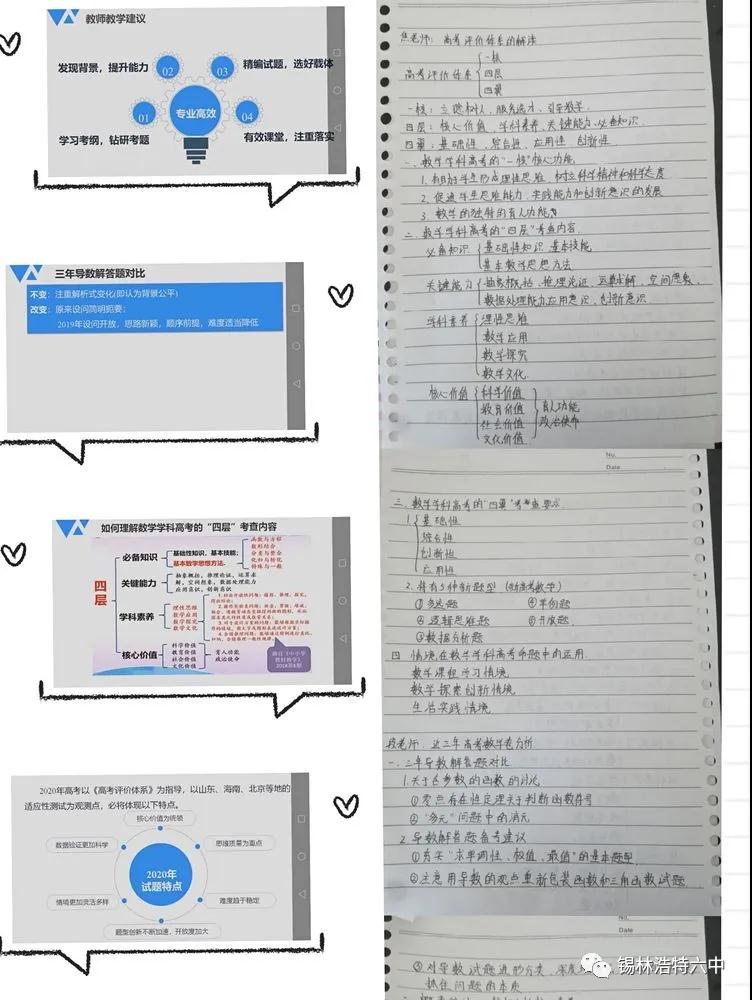 教师教学建议
发现背景，提升能力
02
03
精编试题，选好载体
专业高效
01
04
学习考纲，钻研考题
有效课堂，注重落实
三年导数解答题对比
不变：注重解析式变化(即认为背景公平)
改变：原来设问简明扼要；
2019年设问开放，思路新颖，顺序前提，难度适当降低
如何理解数学学科高考的“四层”考查内容
四层
必备知识
基础性知识、基本技能；
基本数学思想方法。
函数与方程
数形结合
分类与整合
化归与转化
特殊与一般
关键能力
抽象概括，推理论证，运算求
解，空间想象，数据处理能力
应用意识，创新意识
学科素养
理性思维
数学应用
数学探究
数学文化
核心价值
科学价值
教育价值
社会价值
文化价值
育人功能
政治使命
2020年高考以《高考评价体系》为指导，以山东、海南、北京等地的
适应性测试为观测点，必将体现以下特点。
核心价值为统领
数据验证更加科学
思维质量为重点
2020年
试题特点
情境更加灵活多样
难度趋于稳定
题型创新不断加速，开放度加大
焦老师：高考评价体系的解读
高考评价体系
一核
四层
四翼
一核：立德树人、服务选才、引导教学
四层：核心价值、学科素养、关键能力、必备知识
四翼：基础性、综合性、应用性、创新性
一、数学学科高考的“一核”核心功能
1.有助于学生形成理性思维，树立科学精神和科学态度
2.促进学生思维能力、实践能力和创新意识的发展
3.数学的独特的育人功能
二、数学学科高考的“四层”考查内容
必备知识
基础性知识、基本技能
基本数学思想方法
关键能力
抽象概括、推理论证、运算求解、空间想象、
数据处理能力应用意识、创新意识
学科素养
理性思维
数学应用
数学探究
数学文化
核心价值
科学价值
教育价值
社会价值
文化价值
育人功能
政治使命
No.
Date
三、数学学科高考的“四翼”考查要求
1.
基础性
综合性
创新性
应用性
2.将有5种新题型（新高考数学）
①多选题
④举例题
②逻辑思维题
⑤开放题
③数据分析题
四、情境在数学学科高考命题中的运用
数学课程学习情境
数学探索创新情境
生活实践情境
段老师：近三年高考数学卷分析
一、三年导数解答题对比
1.关于含参数的函数的讨论
①零点存在性定理关于判断函数符号
②“多元”问题中的消元
2.导数解答题备考建议
①夯实“求单调性、极值、最值”的基本题型
②注意用导数的观点重新包装函数和三角函数试题
No.
Date
③对导数试题进行分类、深度
抓住问题的本质
锡林浩特六中